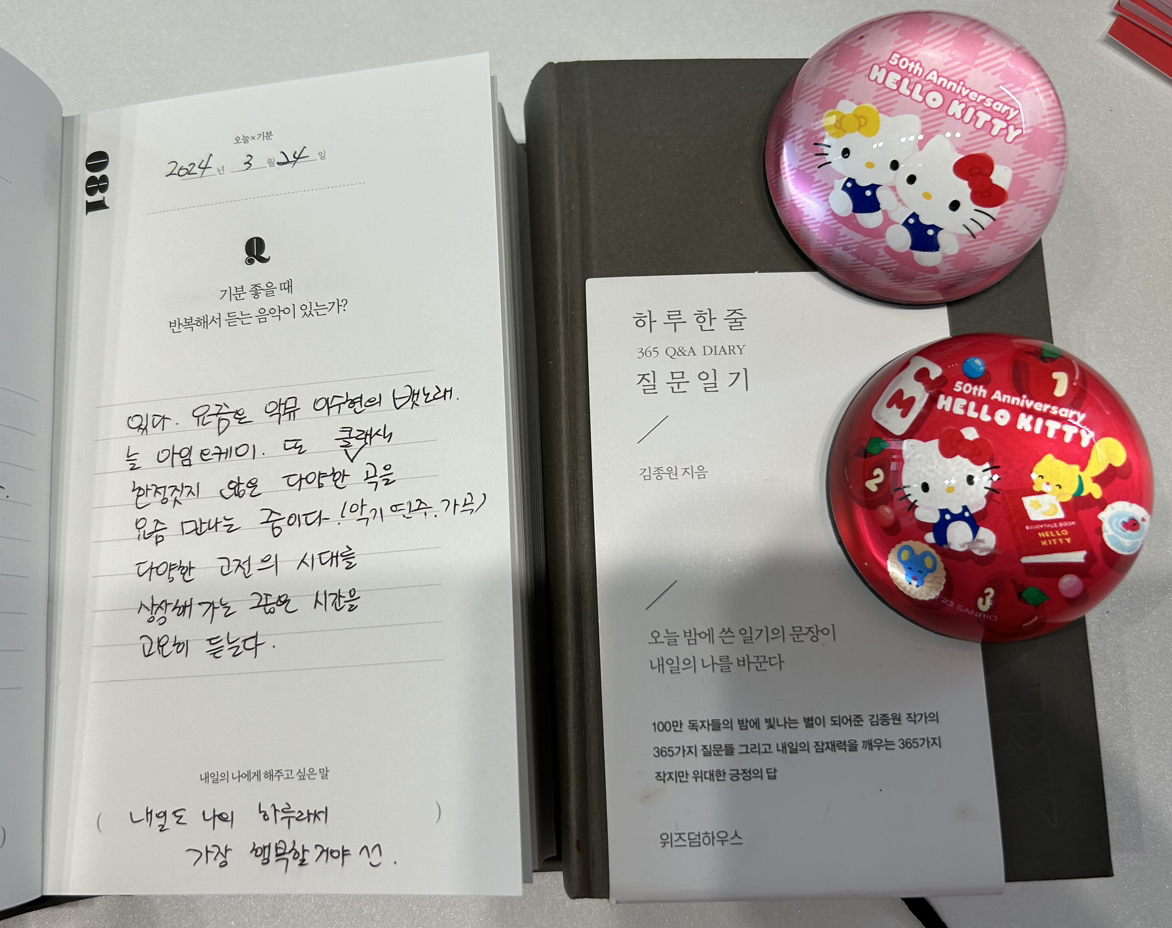 081
오늘×기분
2024년 3월 24일
Q
기분 좋을 때
반복해서 듣는 음악이 있는가?
있다. 요즘은 악뮤 이수현의 뱃노래.
늘 아임 오케이. 또 클래식
한정짓지 않은 다양한 곡을
요즘 만나는 중이다. (악기 연주. 가곡)
다양한 고전의 시대를
상상해 가는 그런 시간을
고요히 듣는다.
내일의 나에게 해주고 싶은 말
( 내일도 나의 하루라서 )
가장 행복할거야 선.
하루 한 줄
365 Q&A DIARY
질문 일기
김종원 지음
오늘 밤에 쓴 일기의 문장이
내일의 나를 바꾼다
100만 독자들의 밤에 빛나는 별이 되어준 김종원 작가의
365가지 질문들 그리고 내일의 잠재력을 깨우는 365가지
작지만 위대한 긍정의 답
위즈덤하우스
50th Anniversary
HELLO KITTY
50th Anniversary
HELLO KITTY
1
2
3
HELLO
KITTY